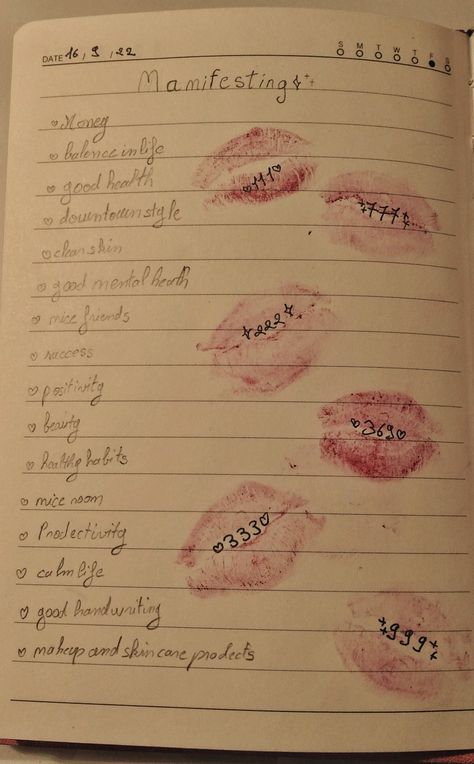 DATE 16 / 9 / 22
S M T W T F S
Manifesting
Money
balence in life
good health
111
downtown style
777
clear skin
good mental heath
nice friends
222
success
positivity
beauty
369
healthy habits
nice room
Prodectivity
333
calm life
good handwriting
999
makeup and skin care prodects